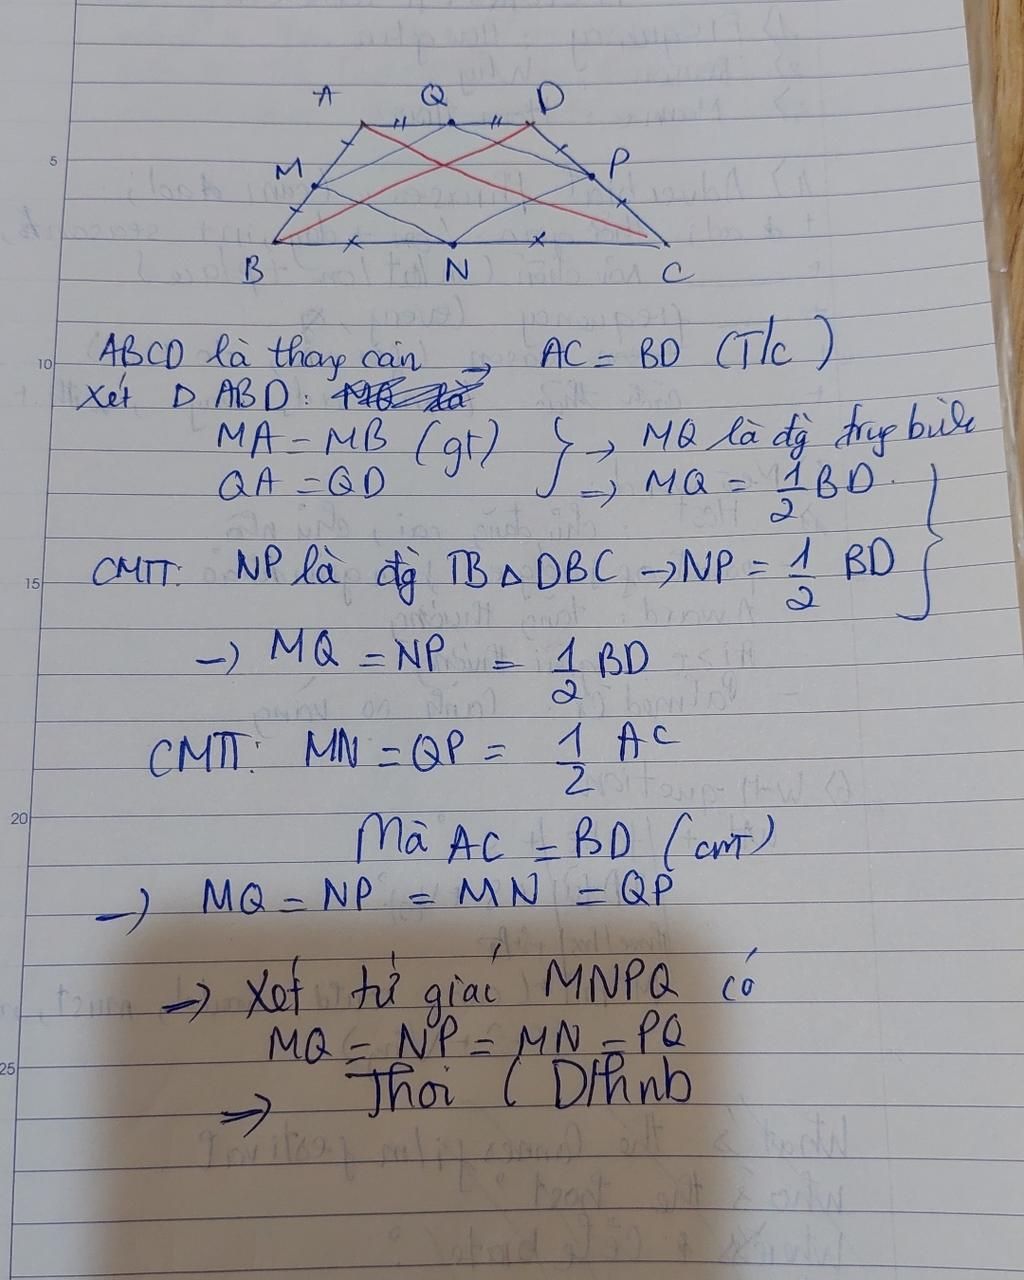 A Q D
M P
B N C
5
ABCD là thang cân → AC = BD (T/c)
10
Xét Δ ABD:
MA = MB (gt) } → MQ là đg trug bình
QA = QD => MQ = 1/2 BD.
CMTT: NP là đg TB Δ DBC → NP = 1/2 BD
15
→ MQ = NP = 1/2 BD
CMTT: MN = QP = 1/2 AC
20
Mà AC = BD (cmt)
→ MQ = NP = MN = QP
=> Xét tứ giác MNPQ có
MQ = NP = MN = PQ
25
=> Thoi ( D/hnb